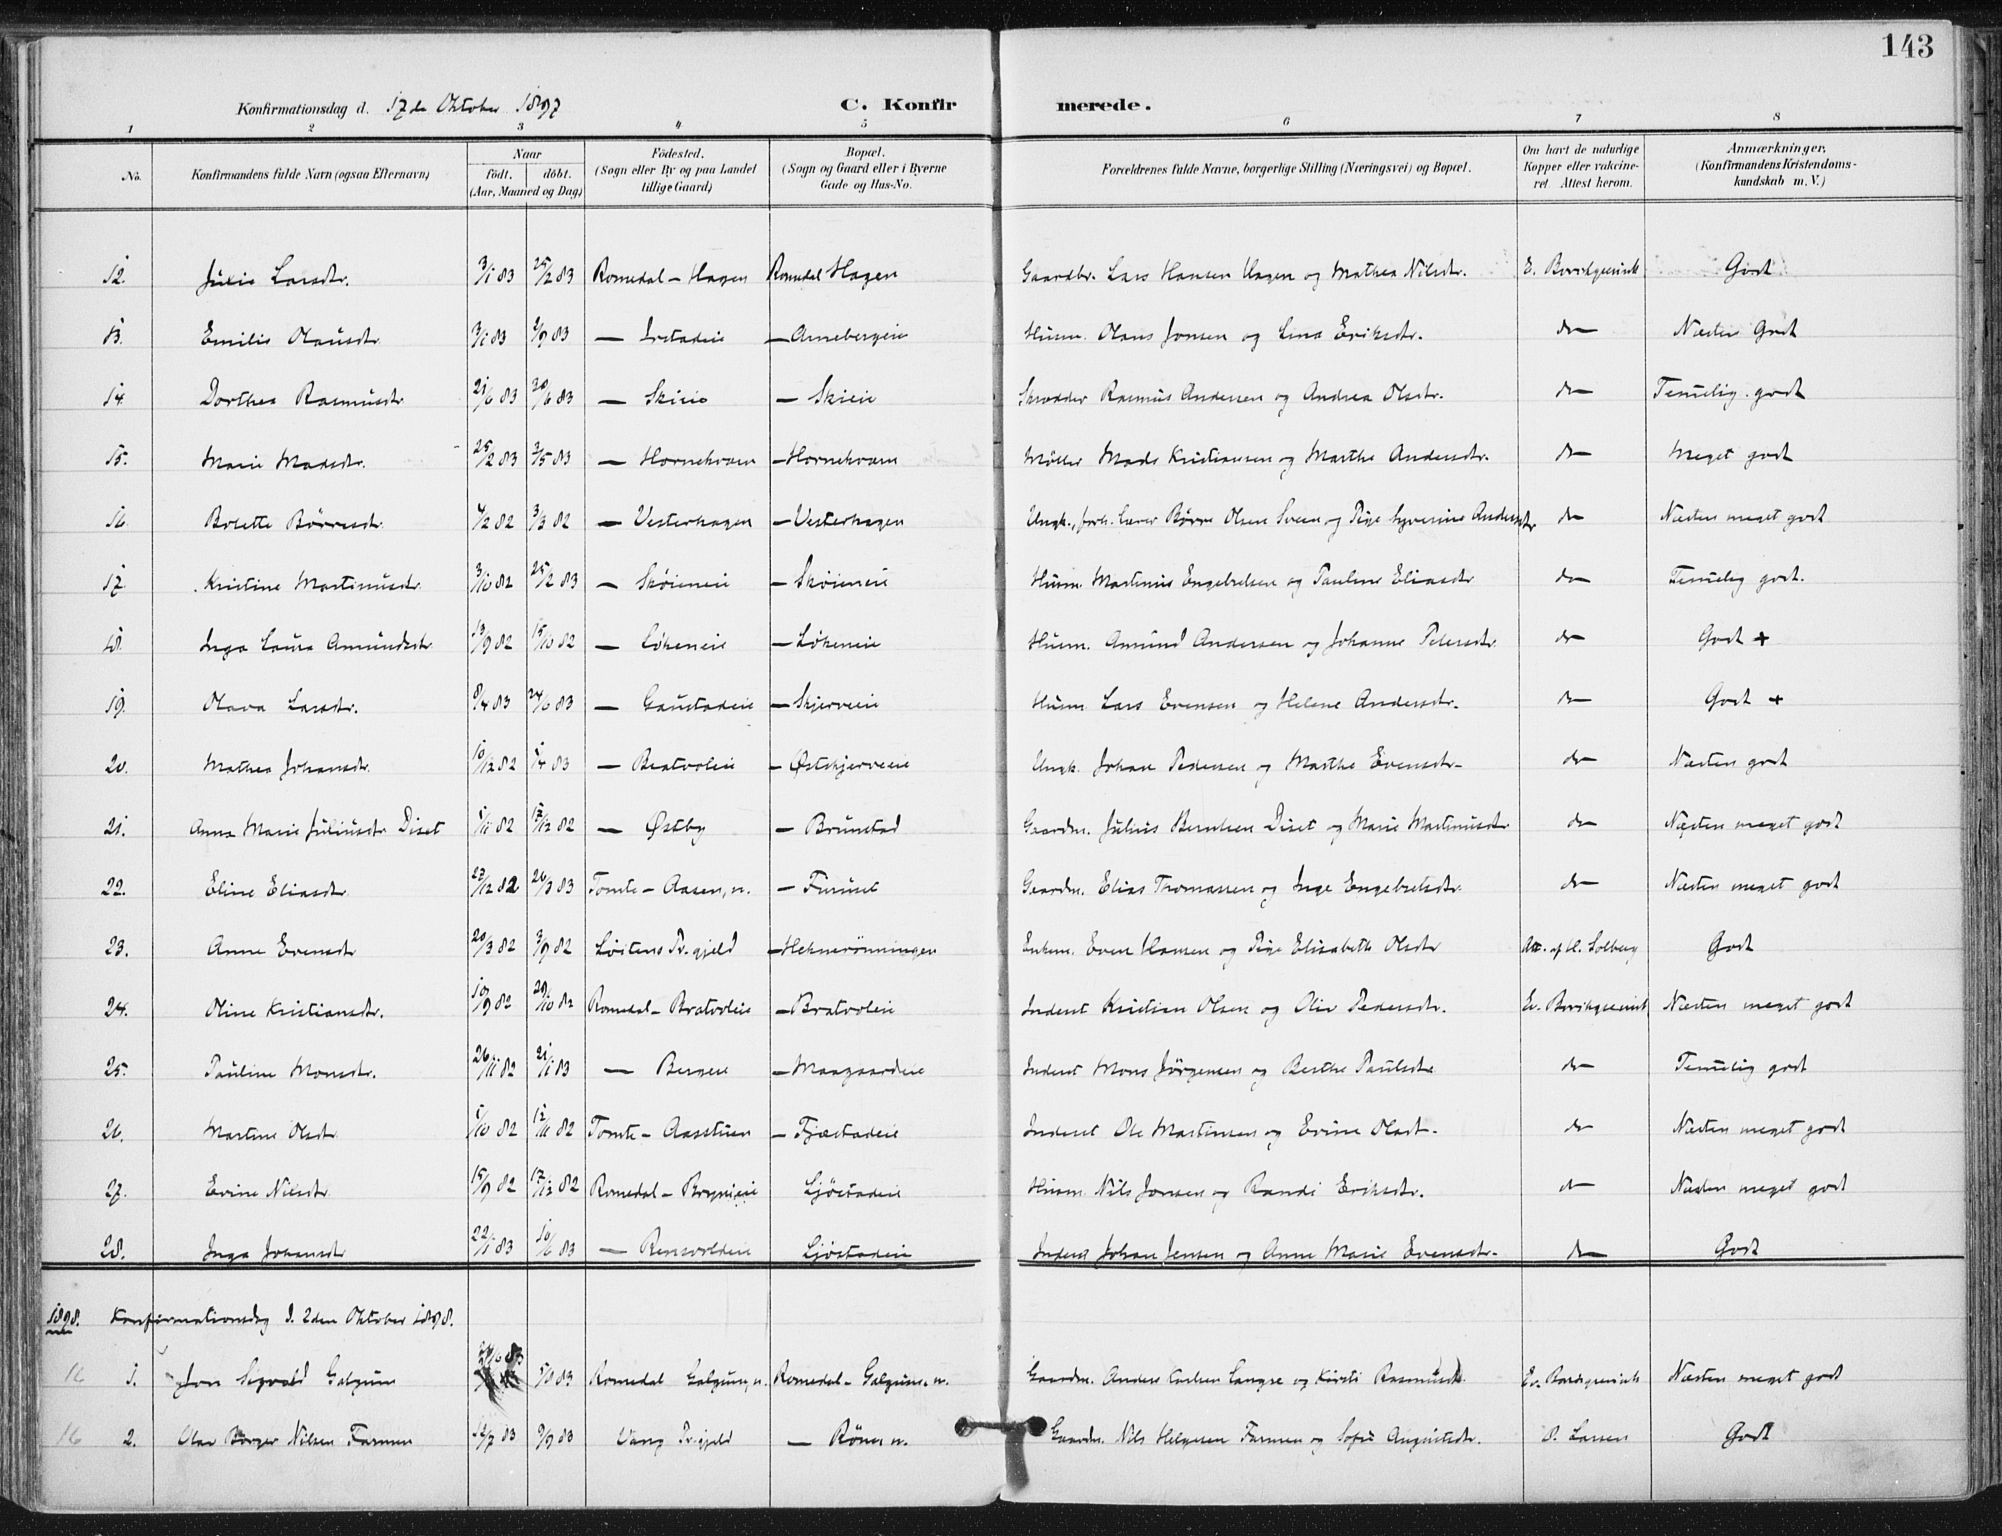 143
Konfirmationsdag d. 17de Oktober 1897 C. Konfir merede.
1 2 3 4 5 6 7 8
No. Konfirmandens fulde Navn (ogsaa Efternavn) Naar födt. döbt. (Aar, Maaned og Dag) Födested. (Sogn eller By og paa Landet tillige Gaard) Bopæl. (Sogn og Gaard eller i Byerne Gade og Hus-No. Forældrenes fulde Navne, borgerlige Stilling (Næringsvei) og Bopæl. Om havt de naturlige Kopper eller vakcineret. Attest herom. Anmærkninger, (Konfirmandens Kristendomskundskab m. V.)
12. Julie Larsdtr. 3/1 83 25/2 83 Romedal - Hagen Romedal Hagen Gaardbr. Lars Hansen Hagen og Mathea Nilsdtr. E. Borchgrevink Godt
13. Emilie Olausdtr. 3/1 83 2/9 83 — Irstadeie — Arnebergeie Husm. Olaus Jonsen og Lina Eriksdtr. do Næsten Godt
14. Dorthea Rasmusdtr. 21/6 83 30/6 83 — Skieie — Skieie Skrædder Rasmus Andersen og Andrea Olsdtr. do Temelig godt
15. Marie Madsdtr. 25/2 83 3/5 83 — Hornekvam — Hornekvam Møller Mads Kristiansen og Marthe Andersdtr. do Meget godt
16. Bolette Börresdtr. 4/2 82 3/3 82 — Vesterhagen — Vesterhagen Ungk., forh. Lærer Børre Olsen Sveen og Pige Syverine Andersdtr do Næsten meget godt
17. Kristine Martinusdtr. 3/10 82 25/2 83 — Skøieneie — Skøieneie Husm. Martinus Engebretsen og Pauline Eliasdtr do Temelig godt.
18. Inga Laura Amundsdtr. 13/9 82 15/10 82 — Løkeneie — Løkeneie Husm. Amund Andersen og Johanne Pedersdtr. do Godt +
19. Olava Larsdtr. 8/4 83 24/6 83 — Gaustadeie — Skjerveie Husm. Lars Evensen og Helene Andersdtr. do Godt +
20. Mathea Johansdtr. 10/12 82 1/4 83 — Bratvoleie — Østskjerveie Ungk. Johan Pedersen og Marthe Evensdtr. do Næsten godt
21. Anna Marie Juliusdtr Diset 1/11 82 17/12 82 — Østby — Brunstad Gaardm. Julius Berntsen Diset og Marie Martinusdtr do Næsten meget godt
22. Eline Eliasdtr. 27/12 82 26/3 83 Tomte - Aasen, n. — Furuset Gaardm. Elias Thomassen og Inge Engebretsdtr. do Næsten meget godt
23. Anne Evensdtr 20/3 82 3/9 82 Løitens Pr.gjeld — Heknerønningen Enkem. Even Hansen og Pige Elisabeth Olsdtr Att. af H. Solberg Godt
24. Oline Kristiansdtr. 10/9 82 29/10 82 Romedal - Bratvoleie — Bratvoleie Inderst Kristian Olsen og Olia Pedersdtr. Ev. Borchgrevink Næsten meget godt
25. Pauline Monsdtr. 26/11 82 21/1 83 — Bergeie — Maagaardeie Inderst Mons Jørgensen og Berthe Paulsdtr do Temelig godt
26. Martine Olsdtr. 1/10 82 12/11 82 Tomte - Aasstuen — Fjæstadeie Inderst Ole Martinsen og Evine Olsdtr. do Næsten meget godt
27. Evine Nilsdtr. 15/9 82 17/12 82 Romedal - Brynieie Ljøstadeie Husm. Nils Jonsen og Randi Eriksdtr. do Næsten meget godt
28. Inga Johansdtr 22/1 83 10/6 83 — Rensvoldeie Ljøstadeie Inderst Johan Jensen og Anne Marie Evensdtr. do Godt
1898. Konfirmationsdag d. 2den Oktober 1898.
16 1. Jon Sigvald Galgum 83 5/8 83 Romedal Galgum, n. Romedal - Galgum. n. Gaardm. Anders Carlsen Langre og Kirsti Rasmusdtr. Ev. Borchgrevink Næsten meget godt
16 2. Olav Borger Nilsen Farmen 12/7 83 9/9 83 Vang Pr.gjeld — Rönn n. Gaardm. Nils Helgesen Farmen og Sofie Augustsdtr. P. Larsen Godt